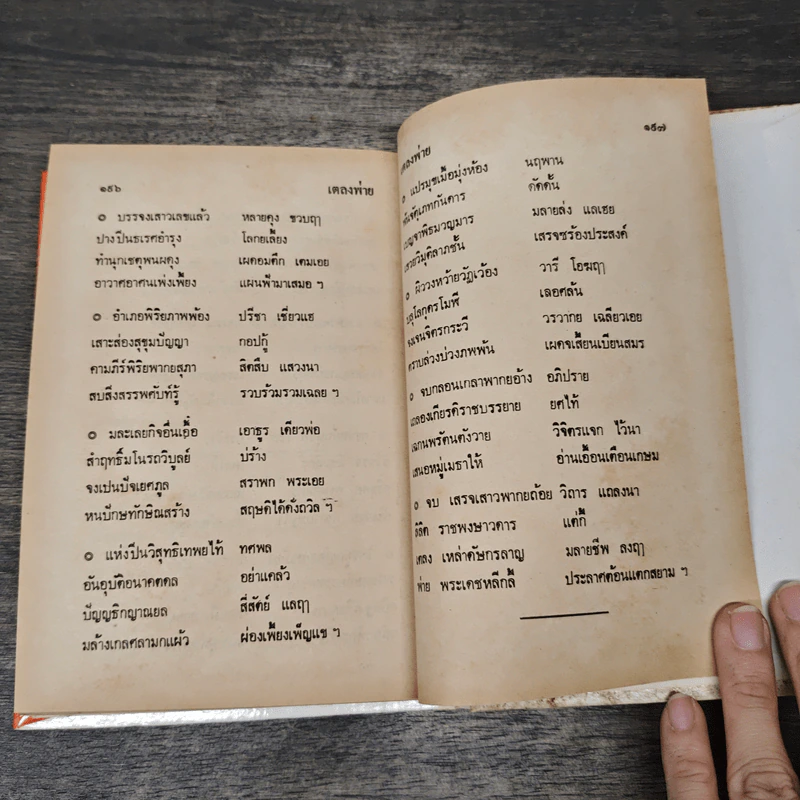 ๑๙๖ เตลงพ่าย
๏ บรรจงเสาวเลขแล้ว หลายคุง ขวบฤๅ
ปางปิ่นธเรศอำรุง โลกยเลี้ยง
ทำนุกเชตุพนผดุง เผดอมตึก เตมเอย
อาวาศอาศนเพ่งเพี้ยง แผ่นฟ้ามาเสมอ ฯ
๏ อำเภอพิริยภาพพ้อง ปรีชา เชี่ยวแฮ
เสาะส่องสุขุมปัญญา กอปกู้
คามภีร์พิริยพากยสุภา สิตสืบ แสวงนา
สบสิ่งสรรพศับท์รู้ รวบร้วมรวมเฉลย ฯ
๏ มละเลยกิจอื่นเอื้อ เอาธูร เดียวพ่อ
สำฤทธิ์มโนรถวิบูลย์ บ่ร้าง
จงเปนปัจเยศภูล สราพก พระเอย
หนปักษทักษิณสร้าง สฤษดิได้ดั่งถวิล ฯ
๏ แห่งปิ่นวิสุทธิเทพยไท้ ทศพล
อันอุบัติอนาคตดล อย่าแคล้ว
ปัญญธิกญาณยล สี่สัตย์ แลฤๅ
มล้างเกลศลามกแผ้ว ผ่องเพี้ยงเพ็ญแข ฯ
เตลงพ่าย ๑๙๗
๏ แปรมุขเมื้อมุ่งห้อง นฤพาน
เภทกันดาร ดัดดั้น
พิธมวญมาร มลายส่ง แลเฮย
วิมุติลาภชั้น เสรจซร้องประสงค์
๏ ผิววงหว้ายวัฏเวิ้อง วารี โอฆฤๅ
โลกุตรโมฬี เลอศล้น
จงเจนจิตรกระวี วรวากย เฉลียวเอย
ตราบล่วงบ่วงภพพัน เผดจเสี้ยนเบียนสมร
๏ จบกลอนเกลาพากยอ้าง อภิปราย
ฉลองเกียรติราชบรรยาย ยศไท้
เฉกนพรัตนดังวาย วิจิตรแจก ไว้นา
เสนอหมู่เมธาให้ อ่านเอื้อนเตือนเกษม
๏ จบ เสรจเสาวพากยถ้อย วิถาร แถลงนา
ลิลิต ราชพงษาวดาร แต่กี้
เตลง เหล่าดัษกรลาญ มลายชีพ ลงฤๅ
พ่าย พระเดชหลีกลี้ ประลาศต้อนแตกสยาม ฯ